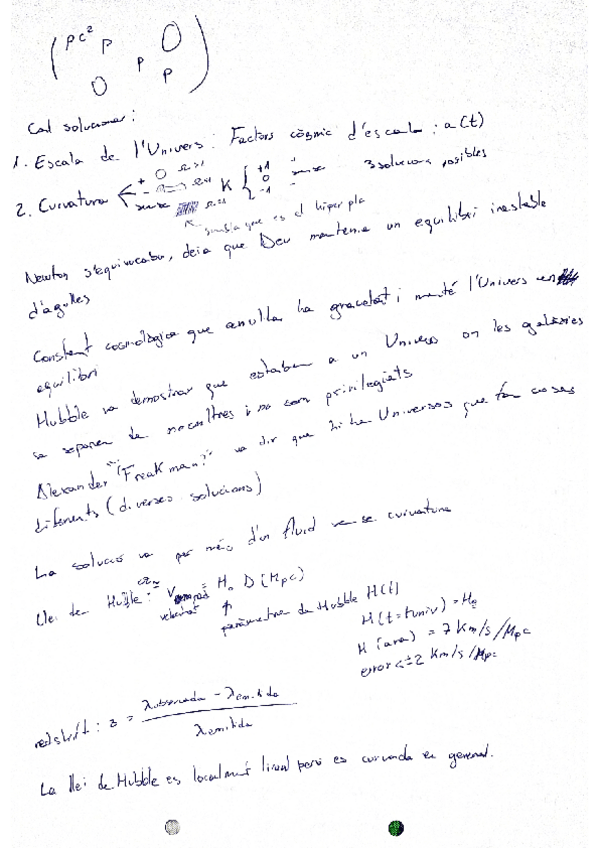 ρc² p O
O p p
Cal solucionar:
1. Escala de l'Univers: Factors còsmic d'escala: a(t)
2. Curvatura K { +1 0 -1 3 solucions posibles
sembla que es el hiper pla
Newton s'equivocaba, deia que Deu mantenia un equilibri inestable
d'agulles
Constant cosmològica que anulla ha gravetat i manté l'Univers en
equilibri
Hubble va demostrar que estabem a un Univers on les galàxies
se separen de nosaltres i no som privilegiats
Alexander "Freakman?" va dir que hi ha Universos que fan coses
diferents (diverses solucions)
La solució va per més d'un fluid sense curvatura
Llei de Hubble: = H₀ D (Mpc)
velocitat paràmetre de Hubble H(t)
H(t=tuniv) = H₀
H(ara) = 7 Km/s/Mpc
error < ±2 Km/s/Mpc
redshift: z = λobservada - λemitida
λemitida
La llei de Hubble es localment lineal però es curvada en general.